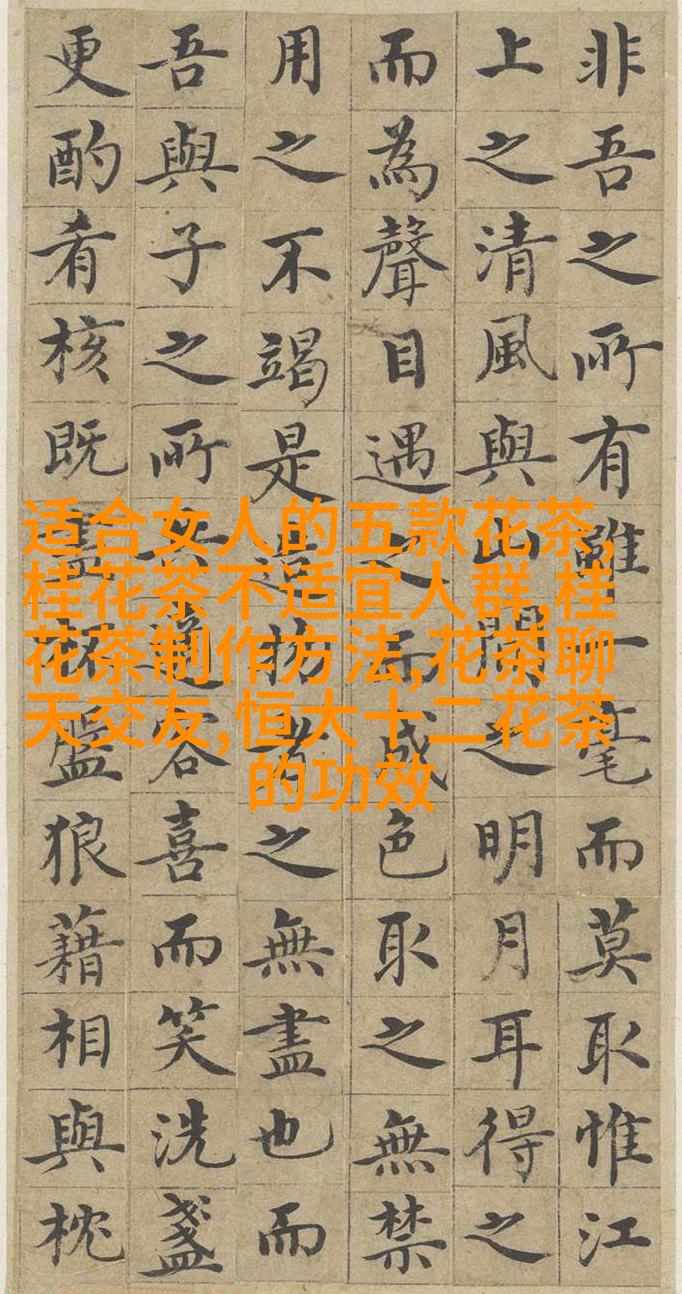 非吾之所有雖一毫而莫取惟江
上之清風與山間之明月耳得之
而為聲目遇之而成色取之無禁
用之不竭是造物者之無盡也而
吾與子之所共適客喜而笑洗盞
更酌肴核既盡杯盤狼藉相與枕
适合女人的五款花茶,
桂花茶不适宜人群,桂
花茶制作方法,花茶聊
天交友,恒大十二花茶
的功效